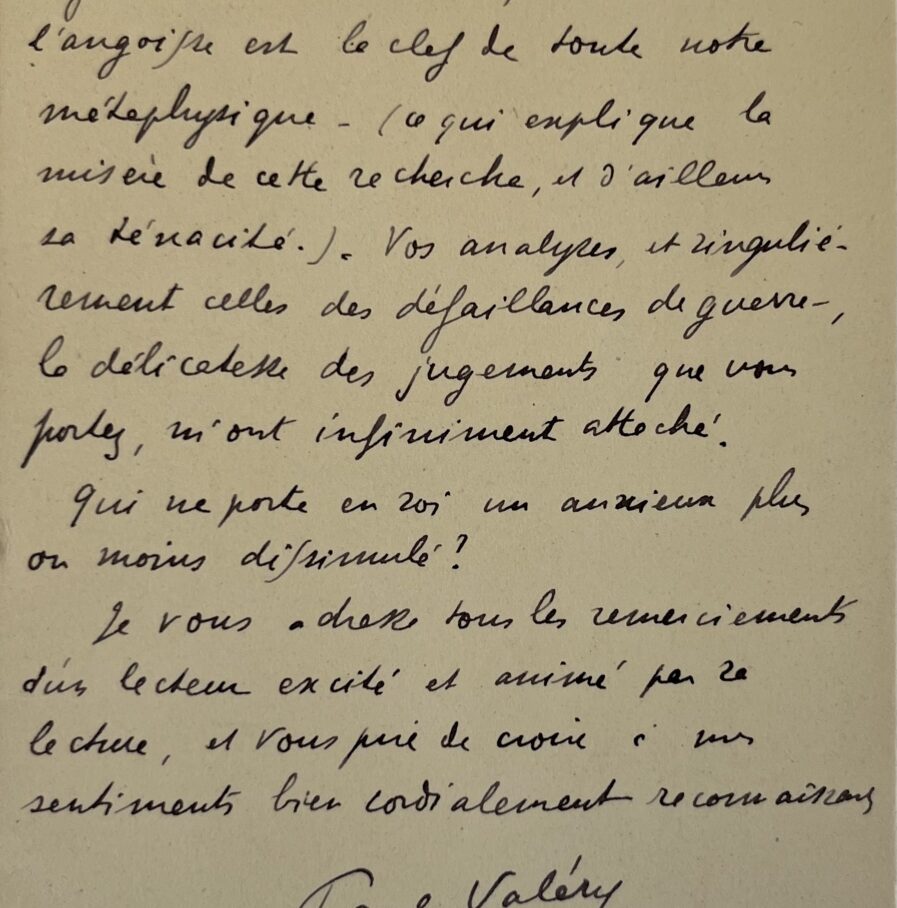 l'angoisse est la clef de toute notre
métaphysique - (ce qui explique la
misère de cette recherche, et d'ailleurs
sa ténacité.). Vos analyses, et singuliè-
rement celles des défaillances de guerre -,
la délicatesse des jugements que vous
portez, m'ont infiniment attaché.
Qui ne porte en soi un anxieux plus
ou moins dissimulé?
Je vous adresse tous les remerciements
d'un lecteur excité et animé par sa
lecture, et vous prie de croire à mes
sentiments bien cordialement reconnaissants
Paul Valéry